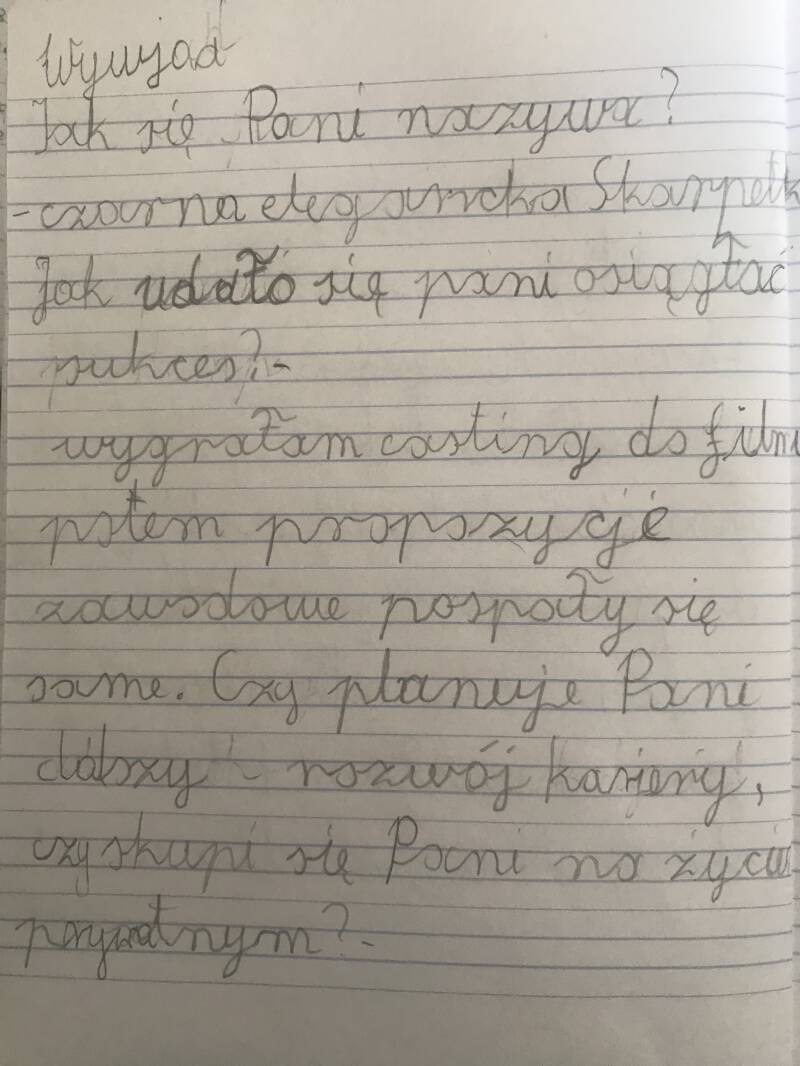 Wywjad
Jak się Pani nazywa?
- czarna elegancka Skarpetk
Jak udało się pani osiągłać
sukces?-
wygrałam casting do filmu
potem propozycje
zawodowe posypały się
same. Czy planuje Pani
dalszy - rozwój kariery,
czy skupi się Pani na życiu
prywatnym?-